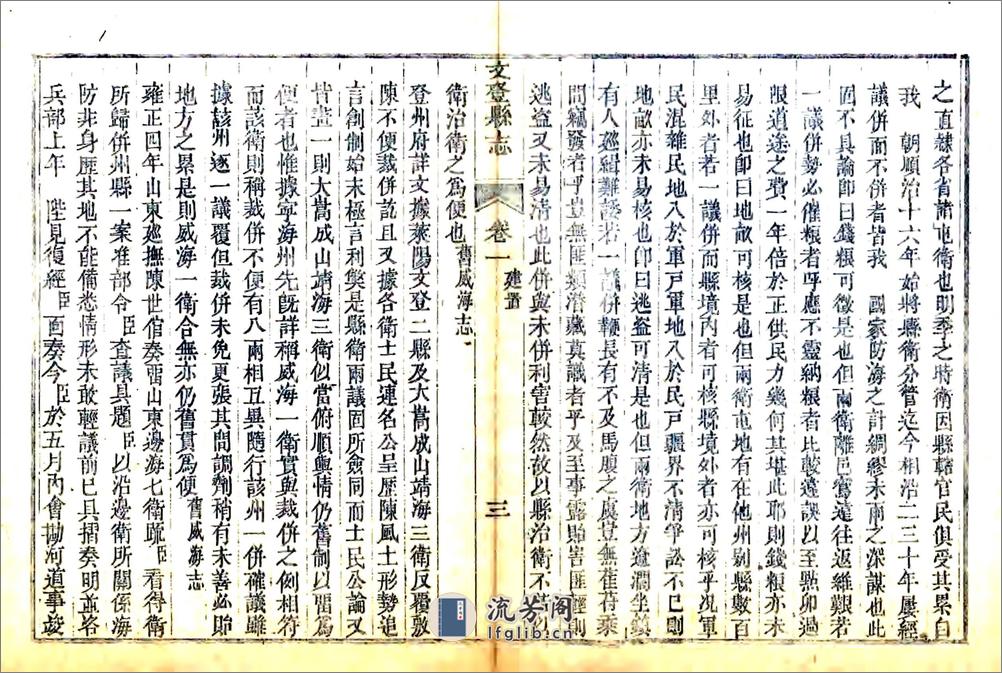 之直隸各省諸屯衛也明季之時衛因縣轄官民俱受其累自
我　朝順治十六年始將縣衛分管迄今相沿二三十年屢經
議併而不併者皆我　國家防海之計綢繆未雨之深謀也此
固不具論即曰錢粮可徵是也但兩衛離邑寫遠往返維艱若
一議併勢必催粮者呼應不靈納粮者比較違誤以至點卯過
限道途之費一年倍於正供民力幾何其堪此耶則錢粮亦未
易征也即曰地畝可核是也但兩衛屯地有在他州別縣數百
里外者若一議併而縣境內者可核縣境外者亦可核乎况軍
民混雜民地入於軍戶軍地入於民戶疆界不清爭訟不已則
地畝亦未易核也即曰逃盜可清是也但兩衛地方遼濶坐鎮
有人廵緝難諉若一議併鞭長有不及馬腹之虞豈無萑苻乘
間竊發者乎豈無匪類潛藏莫識者乎及至事露貽害匪輕則
逃盜又未易清也此併與未併利害較然故以縣治衛不若以
衛治衛之爲便也　舊威海志
文登縣志　卷一　建置　三
登州府詳文據萊陽文登二縣及大嵩成山靖海三衛反覆敷
陳不便裁併說且又據各衛士民連名公呈歷陳風土形勢追
言創制始末極言利獘是縣衛兩議固所僉同而士民公論又
皆畫一則大嵩成山靖海三衛似當俯順輿情仍舊制以畱爲
便者也惟據寧海州先旣詳稱威海一衛實與裁併之例相符
而該衛則稱裁併不便有八兩相互異隨行該州一併確議雖
據該州逐一議覆但裁併未免更張其間調劑稍有未善必貽
地方之累是則威海一衛合無亦仍舊貫爲便　舊威海志
雍正四年山東廵撫陳世倌奏畱山東邊海七衛疏臣看得衛
所歸併州縣一案准部令臣查議具題臣以沿邊衛所關係海
防非身歷其地不能備悉情形未敢輕議前已具摺奏明並咨
兵部上年　陛見復經臣面奏今臣於五月內會勘河道事竣
流芳阁
lfglib.cn